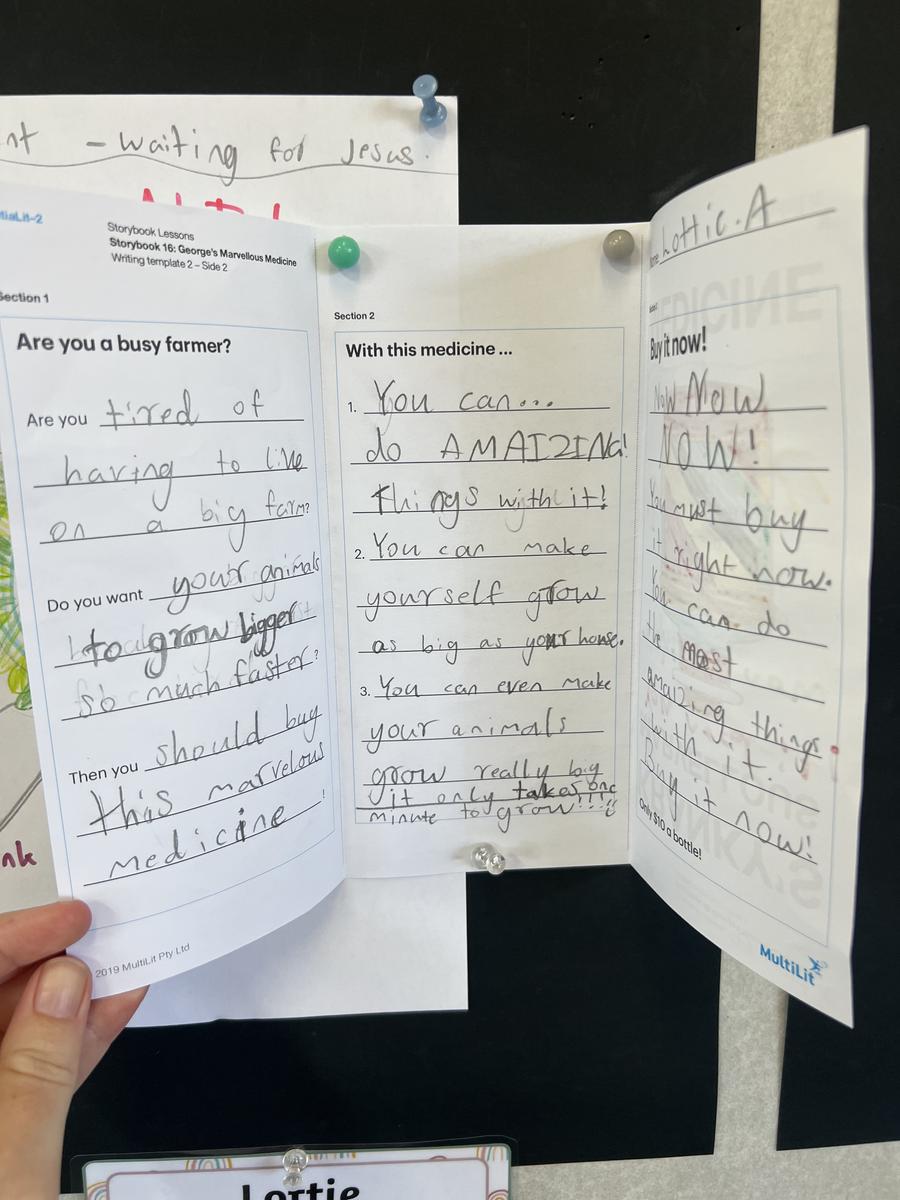 nt - waiting for Jesus.
tiaLit-2
Storybook Lessons
Storybook 16: George's Marvellous Medicine
Writing template 2 – Side 2
Section 1
Are you a busy farmer?
Are you tired of
having to live
on a big farm?
Do you want your animals
to grow bigger
so much faster?
Then you should buy
this marvelous
medicine!
2019 MultiLit Pty Ltd
Section 2
With this medicine ...
1. You can...
do AMAIZING!
things with it!
2. You can make
yourself grow
as big as your house.
3. You can even make
your animals
grow really big
it only takes one
minute to grow!!!!
Lottie.A
Buy it now!
NOW NOW
NOW!
You must buy
it right now.
You can do
the most
amaizing things
with it.
Buy it now!
Only $10 a bottle!
MultiLit
nk
Lottie